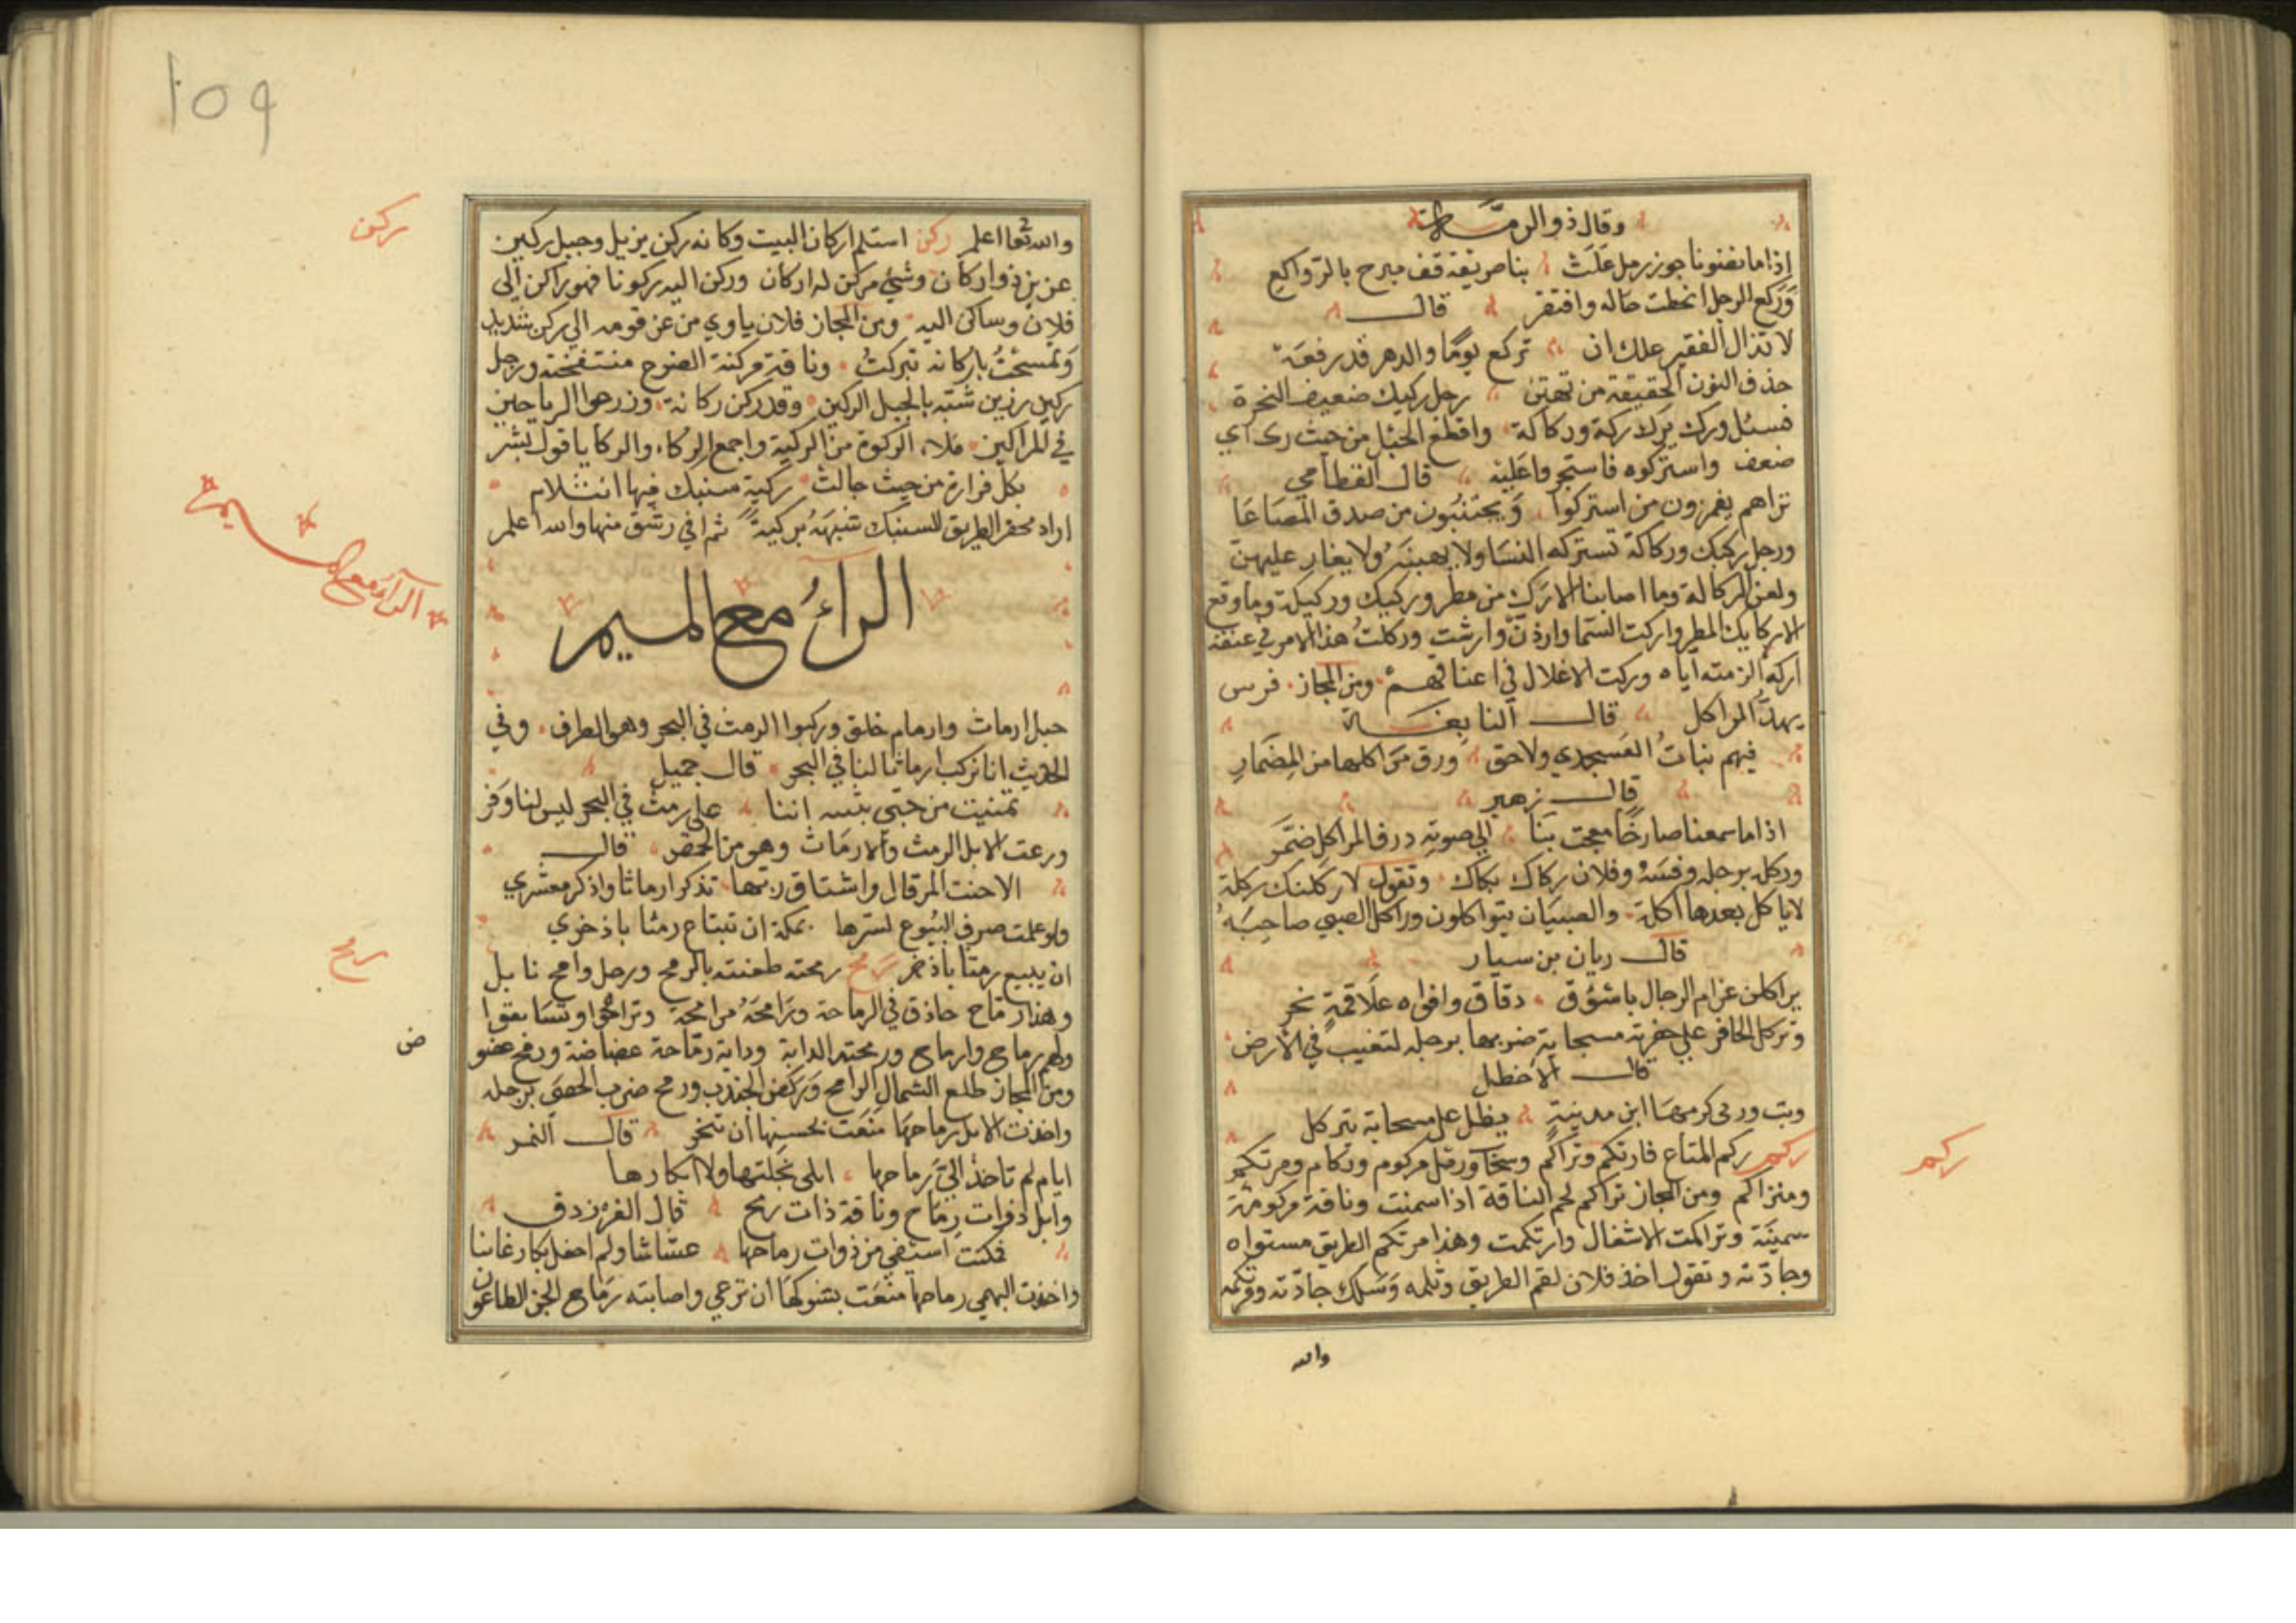 وقال ذو الرمة
إذا ما نضونا جوز رمل علت بنا طريقة قف مبرح بالرواكع
وركع الرجل انحطت حاله وافتقر قال
لا تذال الفقير علك ان تركع يومًا والدهر قد رفعه
حذف النون الحقيقة من تهين رجل ركيك ضعيف النحرة
فسئل ورك يرك ركة وركاكة واقطع الحبل من حيث رك اي
ضعف واستركوه فاستجروا عليه قال القطامي
تراهم يغمزون من استركوا ويجتنبون من صدق المصاعا
ورجل ركيك وركاكة تستركه النسا ولا يهبنه ولا يغار عليهن
ولعن الركاكة وما اصابنا الا رك من مطر وركيك وركيكة وما وقع
الا ركايك المطر واركت السما وارذت وارشت وركلت هذا الامر في عنقه
اركه الزمته اياه وركت الاغلال في اعناقهم ومن المجاز فرس
نهد المراكل قال النابغة
فيهم بنات العسجدي ولاحق ورق مراكلها من المضمار
قال زهير
اذا ما سمعنا صارخًا معجت بنا الى صوته درق المراكل ضمر
وركل برجله وفلان ركاك بكاك وتقول لاركلنك ركلة
لا ياكل بعدها اكلة والصبيان يتواكلون وراكل الصبي صاحبه
قال ريان بن سيار
يراكلن عزام الرجال باسؤق دقاق وافواه علاقمة نجر
وتركل الحافر على حفرته مسحاته ضربها برجله لتغيب في الارض
قال الاخطل
وبت وربى كرمها ابن مدينة يظل على مسحاته يتركل
ركم ركم المتاع فارتكم وتراكم وسحاب ورمل مركوم وركام ومرتكم
ومتراكم ومن المجاز تراكم لحم الناقة اذا سمنت وناقة مركومة
سمينة وتراكمت الاشغال وارتكمت وهذا مرتكم الطريق مستواه
وجادته وتقول اخذ فلان لقم الطريق وثلمه وسلك جادته ومرتكمه
والله
ركم
١٥٩
والله تعا اعلم ركن استلم اركان البيت وكانه ركن يزبل وجبل ركين
عزيز ذو اركان وشئ مركن له اركان وركن اليه ركونا فهو راكن الى
فلان وساكن اليه ومن المجاز فلان ياوي من عز قومه الى ركن شديد
وتمسحت باركانه تبركت وناقة مركنة الضرع منتفخته ورجل
ركين رزين شبه بالجبل الركين وقد ركن ركانة وزرعوا الرياحين
في المراكن ملا الركوة من الركية واجمع الركاء والركايا قول بشر
بكل قرارة من حيث جالت ركية سنبك فيها انثلام
اراد محفر الطريق للسنبك شبهه بركية ثم افي رشق منها والله اعلم
الراء مع الميم
حبل ارماث وارمام خلق وركبوا الرمث في البحر وهو الطراف وفي
الحديث انا نركب ارماثا لنا في البحر قال جميل
تمنيت من حبي بثينة اننا على رمث في البحر ليس لنا وفر
ورعت الابل الرمث والارماث وهو من الحمض قال
الا حنت المرقال واشتاق ربها تذكر ارماثا واذكر معشري
ولو علمت صرف البيوع لسرها بمكة ان تبتاع رمثا باذخري
ان يبيع رمثا باذخر رمح رمحته طعنته بالرمح ورجل رامح نابل
وهذا رماح حاذق في الرماحة ورامحه مرامحة وترامحوا وتسايفوا
ولهم رماح وارماح ورمحته الدابة ودابة رماحة عضاضة ورمح عضو
ومن المجاز طلع السماك الرامح وركض الجندب ورمح ضرب الحصى برجله
واخذت الابل رماحها منعت بحسنها ان تنحر قال النمر
ايام لم تاخذ الي رماحها ابلى بجلتها ولا ابكارها
وابل ذوات رماح وناقة ذات رمح قال الفرزدق
فمكنت استفى من ذوات رماحها عشاشا ولم احفل بكا رغائنا
واخذت البهمى رماحها منعت بشوكها ان ترعى واصابته رماح الجن الطاعون
ركن
الراء مع الميم
رمح
ض